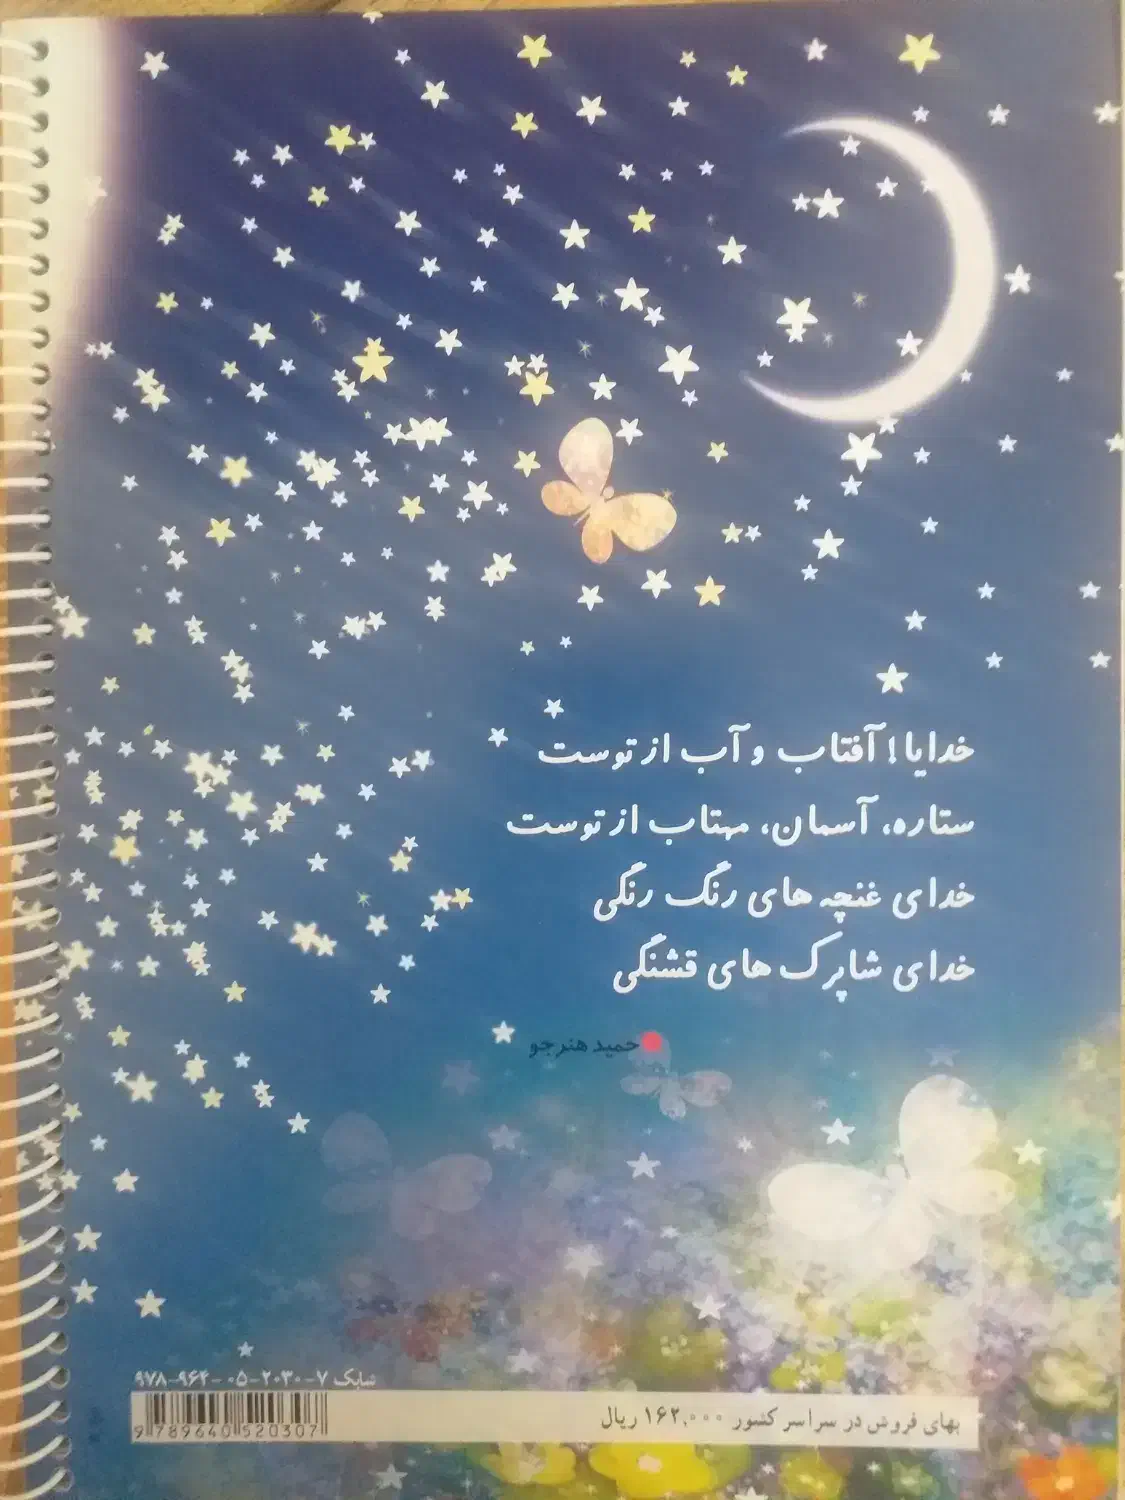 خدایا! آفتاب و آب از توست
ستاره، آسمان، مهتاب از توست
خدای غنچه های رنگ رنگی
خدای شاپرک های قشنگی
حمید هنرجو
شابک ۷-۲۰۳۰-۰۵-۹۶۴-۹۷۸
بهای فروش در سراسر کشور ۱۶۲,۰۰۰ ریال
9 789640 520307